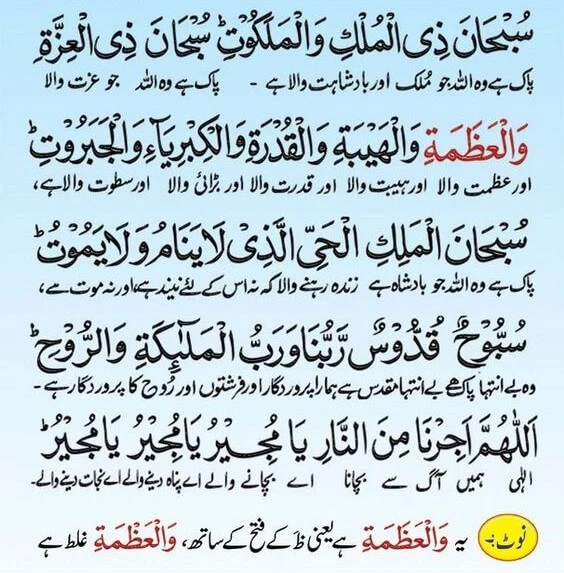 سُبْحَانَ ذِی الْمُلْكِ وَالْمَلَكُوْتِ ؕ سُبْحَانَ ذِی الْعِزَّةِ
پاک ہے وہ اللہ جو مُلک اور بادشاہت والا ہے - پاک ہے وہ اللہ جو عزت والا
وَالْعَظَمَةِ وَالْهَيْبَةِ وَالْقُدْرَةِ وَالْكِبْرِيَآءِ وَالْجَبَرُوْتِ ؕ
اور عظمت والا اور ہیبت والا اور قدرت والا اور بڑائی والا اور سطوت والا ہے،
سُبْحَانَ الْمَلِكِ الْحَیِّ الَّذِیْ لَا يَنَامُ وَلَا يَمُوْتُ ؕ
پاک ہے وہ اللہ جو بادشاہ ہے زندہ رہنے والا کہ نہ اس کے لئے نیند ہے، اور نہ موت ہے،
سُبُّوْحٌ قُدُّوْسٌ رَّبُّنَا وَرَبُّ الْمَلٰٓئِكَةِ وَالرُّوْحِ ؕ
وہ بے انتہا پاک ہے بے انتہا مقدس ہے ہمارا پروردگار اور فرشتوں اور رُوح کا پروردگار ہے -
اَللّٰهُمَّ اَجِرْنَا مِنَ النَّارِ يَا مُجِيْرُ يَا مُجِيْرُ يَا مُجِيْرُ ؕ
الٰہی ہمیں آگ سے بچانا اے بچانے والے اے پناہ دینے والے اے نجات دینے والے -
نوٹ:- یہ وَالْعَظَمَةِ ہے یعنی ظَ کے فتح کے ساتھ، وَالْعَظْمَةِ غلط ہے